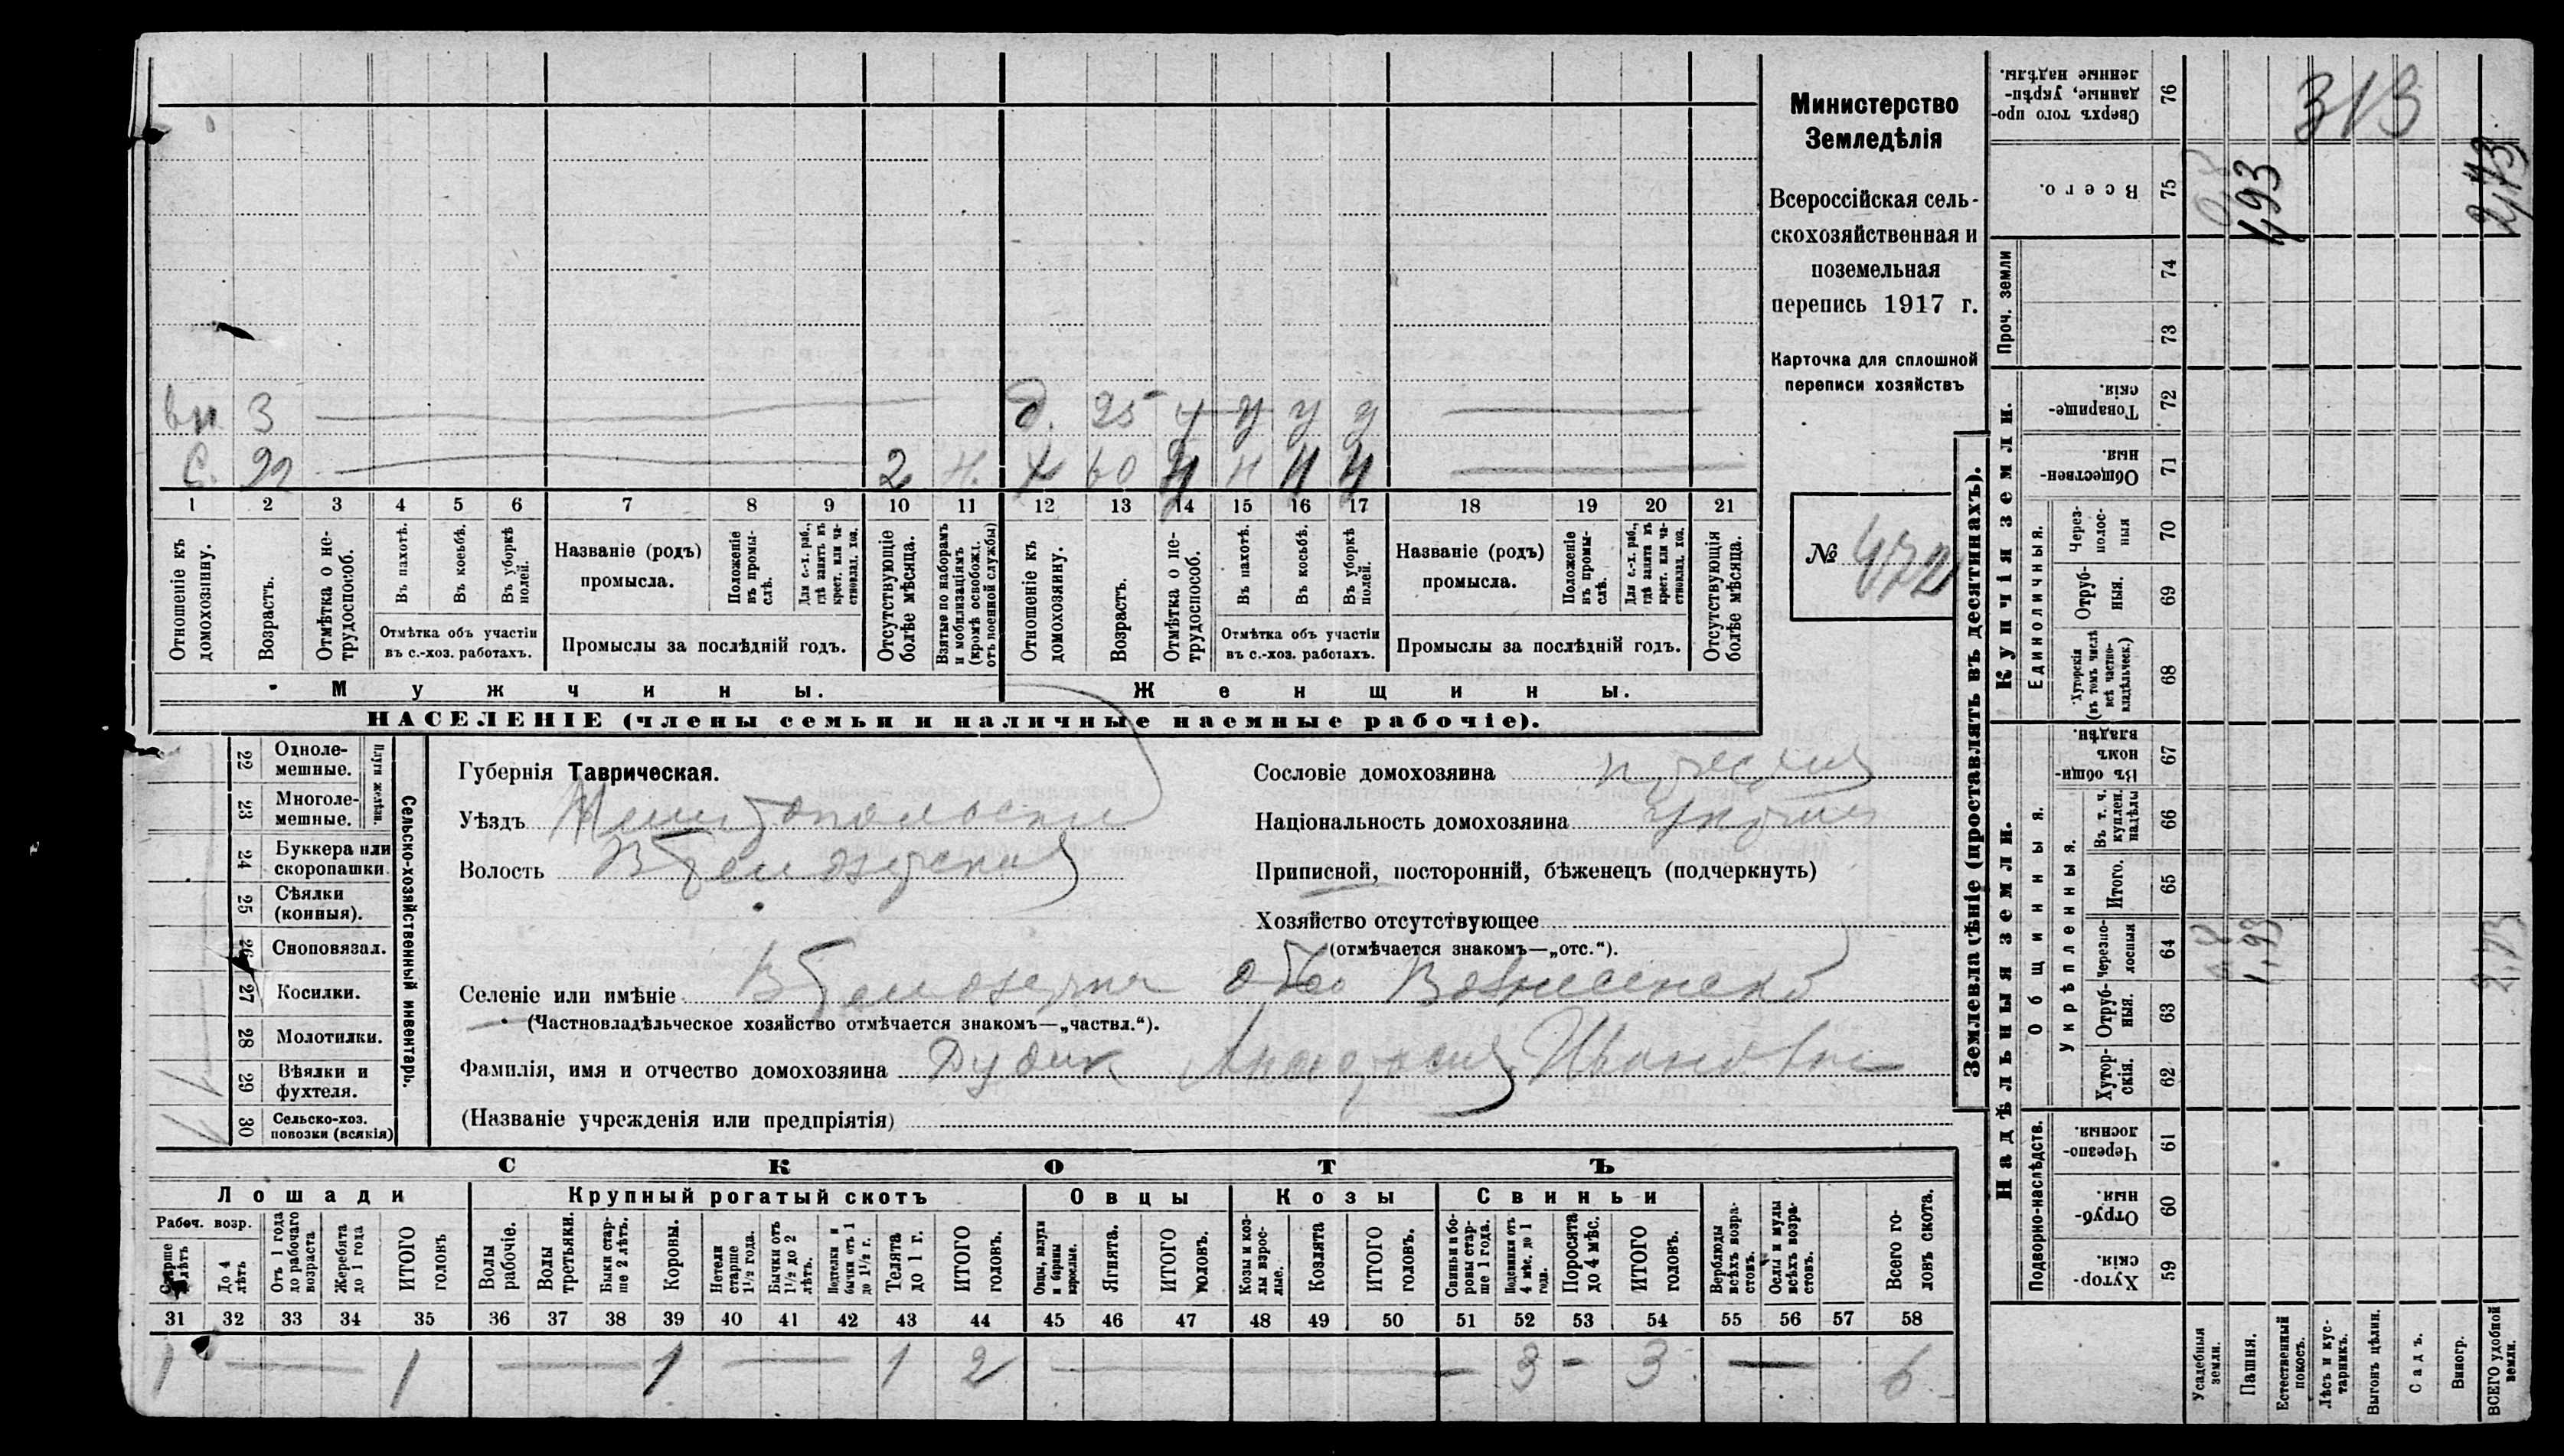 Министерство
Земледѣлія
Всероссійская сель-
скохозяйственная и
поземельная
перепись 1917 г.
Карточка для сплошной
переписи хозяйствъ
№ 472
вн. 3 д. 25 ч у у у
С. 22 2 Н. Х 60 Ч Н Ч Ч
1 2 3 4 5 6 7 8 9 10 11 12 13 14 15 16 17 18 19 20 21
Отношеніе къ домохозяину.
Возрастъ.
Отмѣтка о не-трудоспособ.
Въ пахотѣ.
Въ косьбѣ.
Въ уборкѣ полей.
Отмѣтка объ участіи
въ с.-хоз. работахъ.
Названіе (родъ)
промысла.
Положеніе въ промы-слѣ.
Для с.-х. раб., гдѣ занятъ въ крест. или ча-стновлад. хоз.
Промыслы за послѣдній годъ.
Отсутствующіе болѣе мѣсяца.
Взятые по наборамъ и мобилизаціямъ (кромѣ освобожд. отъ военной службы)
Отношеніе къ домохозяину.
Возрастъ.
Отмѣтка о не-трудоспособ.
Въ пахотѣ.
Въ косьбѣ.
Въ уборкѣ полей.
Отмѣтка объ участіи
въ с.-хоз. работахъ.
Названіе (родъ)
промысла.
Положеніе въ промы-слѣ.
Для с.-х. раб., гдѣ занята въ крест. или ча-стновлад. хоз.
Промыслы за послѣдній годъ.
Отсутствующія болѣе мѣсяца.
Мужчины.
Женщины.
НАСЕЛЕНІЕ (члены семьи и наличные наемные рабочіе).
Сельско-хозяйственный инвентарь.
Плуги желѣзн.
22 Одноле-мешные.
23 Многоле-мешные.
24 Буккера или скоропашки
25 Сѣялки (конныя).
26 Сноповязал.
27 Косилки.
28 Молотилки.
29 Вѣялки и фухтеля.
30 Сельско-хоз. повозки (всякія)
Губернія Таврическая.
Уѣздъ Мелитопольскій
Волость В Бѣлозерская
Селеніе или имѣніе В Бѣлозерка общ Вознесенско
(Частновладѣльческое хозяйство отмѣчается знакомъ—„частвл.“).
Фамилія, имя и отчество домохозяина Дудик Анастасия Ивановна
(Названіе учрежденія или предпріятія)
Сословіе домохозяина
Національность домохозяина
Приписной, посторонній, бѣженецъ (подчеркнуть)
Хозяйство отсутствующее
(отмѣчается знакомъ—„отс.“).
СКОТЪ
Лошади
Рабоч. возр.
Старше 4 лѣтъ
До 4 лѣтъ
Отъ 1 года до рабочаго возраста
Жеребята до 1 года
ИТОГО головъ
Крупный рогатый скотъ
Волы рабочіе.
Волы третьяки.
Быки стар-ше 2 лѣтъ.
Коровы.
Нетели старше 1½ года.
Бычки отъ 1½ до 2 лѣтъ.
Подтелки и бычки отъ 1 до 1½ г.
Телята до 1 г.
ИТОГО головъ.
Овцы
Овцы, валухи и бараны взрослые.
Ягнята.
ИТОГО головъ.
Козы
Козы и коз-лы взрос-лые.
Козлята
ИТОГО головъ.
Свиньи
Свиньи и бо-ровы стар-ше 1 года.
Подсвинки отъ 4 мѣс. до 1 года.
Поросята до 4 мѣс.
ИТОГО головъ.
Верблюды всѣхъ возра-стовъ.
Ослы и мулы всѣхъ возра-стовъ.
Всего го-ловъ скота.
31 32 33 34 35 36 37 38 39 40 41 42 43 44 45 46 47 48 49 50 51 52 53 54 55 56 57 58
1 — 1 — 1 — 1 2 — 3 - 3 — 6
Землевладѣніе (проставлять въ десятинахъ).
Купчія земли.
Надѣльныя земли.
Сверхъ того про-данные, укрѣп-ленные надѣлы. 76
Всего. 75
Проч. земли 74 73
Товарище-скія. 72
Обществен-ныя. 71
Единоличныя.
Через-полос-ныя 70
Отруб-ныя. 69
Хуторскія (въ томъ числѣ всѣ частно-владѣльческ.) 68
Общинныя.
Въ общи-номъ владѣн. 67
Укрѣпленныя.
Въ т. ч. куплен. надѣлы 66
Итого. 65
Черезпо-лосныя 64
Отруб-ныя. 63
Хутор-скія. 62
Подворно-наслѣдств.
Черезпо-лосныя. 61
Отруб-ныя. 60
Хутор-скія. 59
Усадебныя земли.
Пашня.
Естественный покосъ.
Лѣсъ и кус-тарникъ.
Выгонъ цѣлин.
Садъ.
Виногр.
ВСЕГО удобной земли.
313
1,93
2,73
1,93
2,73